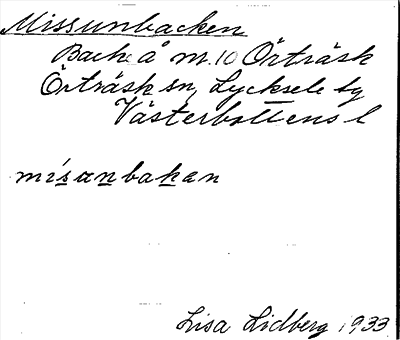 Missunbacken
Backe å nr. 10 Örträsk
Örträsk sn, Lycksele tg
Västerbottens l
mísanbakan
Lisa Lidberg 1933